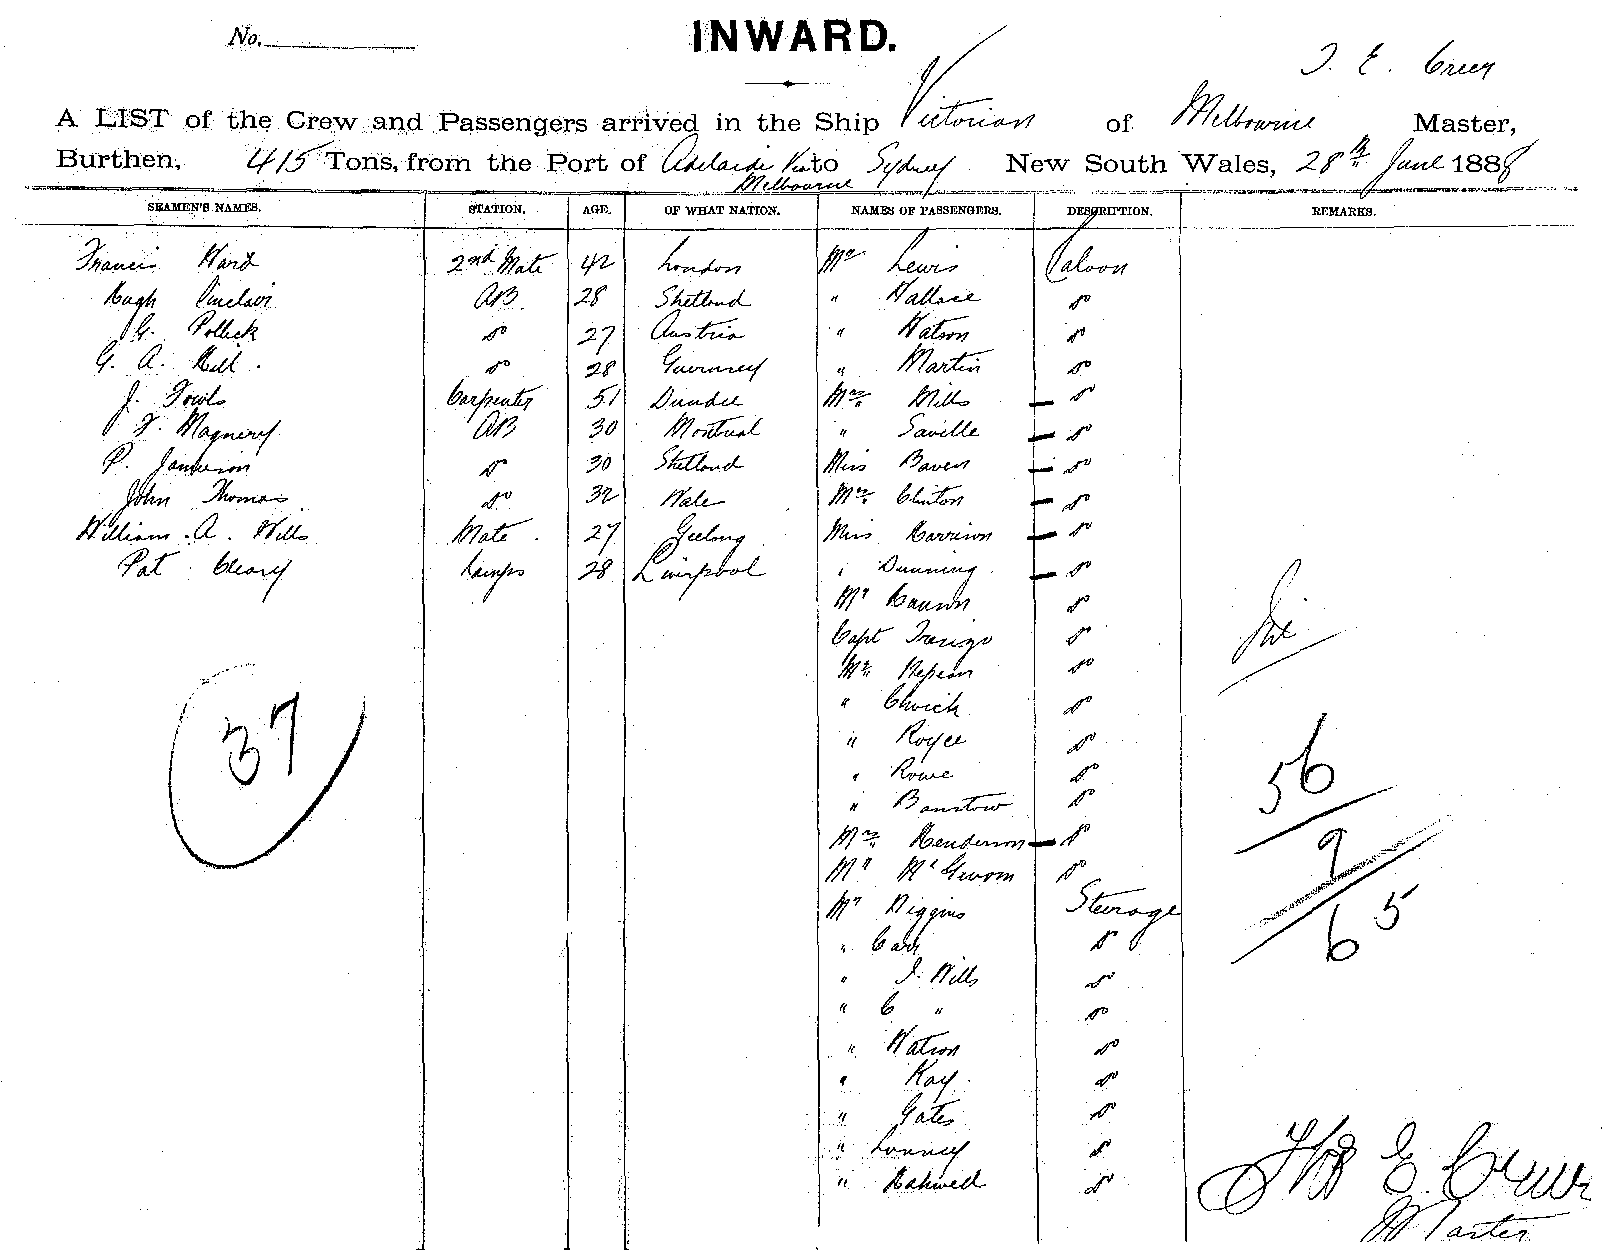 No.
INWARD.
T. E. Creer
A LIST of the Crew and Passengers arrived in the Ship Victorian of Melbourne Master,
Burthen, 415 Tons, from the Port of Adelaide Via to Sydney New South Wales, 28th June 1888
Melbourne
SEAMEN'S NAMES. STATION. AGE. OF WHAT NATION. NAMES OF PASSENGERS. DESCRIPTION. REMARKS.
Francis Ward 2nd Mate 42 London Mr Lewis Saloon
Hugh Sinclair AB 28 Shetland " Wallace do
G. Pollick do 27 Austria " Watson do
G. A. Hill do 28 Guernsey " Martin do
J. Fowls Carpenter 51 Dundee Mrs Mills do
F. Magnery AB 30 Montreal " Saville do
P. Jamieson do 30 Shetland Miss Baven do
John Thomas do 32 Wale Mrs Clinton do
William A. Wills Mate 27 Geelong Miss Harrison do
Pat Cleary Lamps 28 Liverpool " Dunning do
Mr do
Capt do
Mr Hepson do
" do
" Royce do
" Rowe do
" Banstow do
Mrs Henderson do
Mr do
Mr Higgins Steerage
" Carr do
" J. Wills do
" C " do
" Watson do
" Kay do
" Gates do
" Lonney do
" do
37
56
9
65
Thos E. Creer
Master